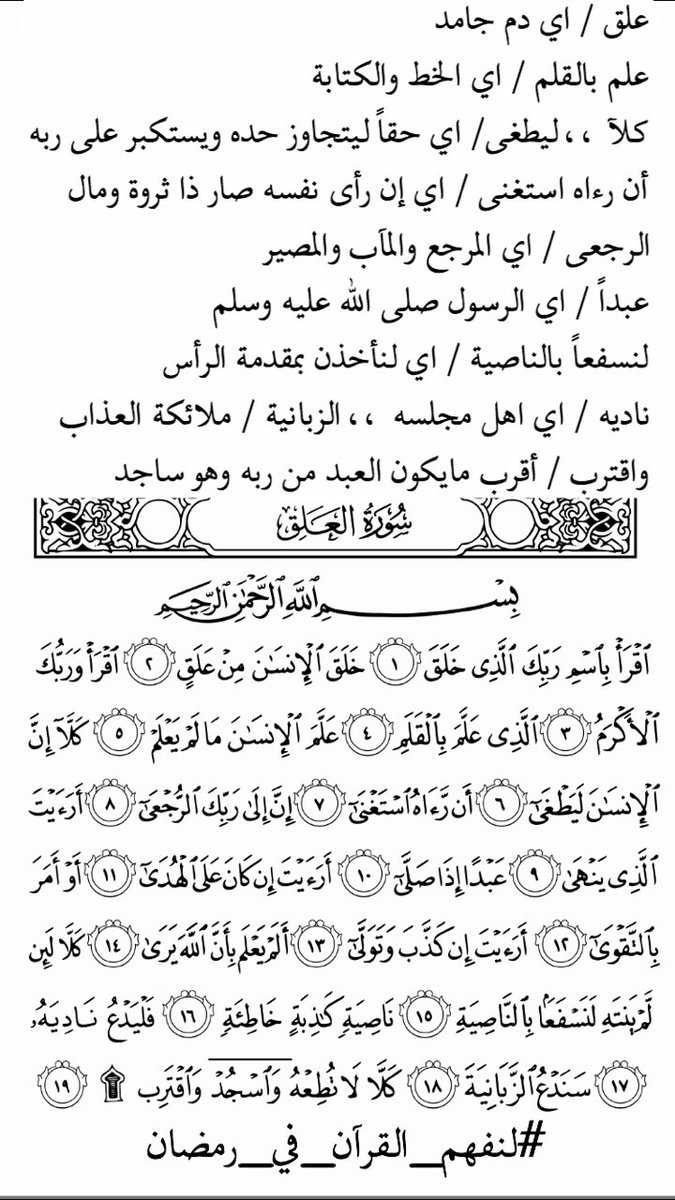 علق / اي دم جامد
علم بالقلم / اي الخط والكتابة
كلآ ،، ليطغى/ اي حقاً ليتجاوز حده ويستكبر على ربه
أن رءاه استغنى / اي إن رأى نفسه صار ذا ثروة ومال
الرجعى / اي المرجع والمآب والمصير
عبداً / اي الرسول صلى الله عليه وسلم
لنسفعاً بالناصية / اي لنأخذن بمقدمة الرأس
ناديه / اي اهل مجلسه ،، الزبانية / ملائكة العذاب
واقترب / أقرب مايكون العبد من ربه وهو ساجد
سُورَةُ العَلَقِ
بِسْمِ اللَّهِ الرَّحْمَٰنِ الرَّحِيمِ
ٱقْرَأْ بِٱسْمِ رَبِّكَ ٱلَّذِى خَلَقَ ١ خَلَقَ ٱلْإِنسَٰنَ مِنْ عَلَقٍ ٢ ٱقْرَأْ وَرَبُّكَ
ٱلْأَكْرَمُ ٣ ٱلَّذِى عَلَّمَ بِٱلْقَلَمِ ٤ عَلَّمَ ٱلْإِنسَٰنَ مَا لَمْ يَعْلَمْ ٥ كَلَّآ إِنَّ
ٱلْإِنسَٰنَ لَيَطْغَىٰٓ ٦ أَن رَّءَاهُ ٱسْتَغْنَىٰٓ ٧ إِنَّ إِلَىٰ رَبِّكَ ٱلرُّجْعَىٰٓ ٨ أَرَءَيْتَ
ٱلَّذِى يَنْهَىٰ ٩ عَبْدًا إِذَا صَلَّىٰٓ ١٠ أَرَءَيْتَ إِن كَانَ عَلَى ٱلْهُدَىٰٓ ١١ أَوْ أَمَرَ
بِٱلتَّقْوَىٰٓ ١٢ أَرَءَيْتَ إِن كَذَّبَ وَتَوَلَّىٰٓ ١٣ أَلَمْ يَعْلَم بِأَنَّ ٱللَّهَ يَرَىٰ ١٤ كَلَّا لَئِن
لَّمْ يَنتَهِ لَنَسْفَعًۢا بِٱلنَّاصِيَةِ ١٥ نَاصِيَةٍ كَٰذِبَةٍ خَاطِئَةٍ ١٦ فَلْيَدْعُ نَادِيَهُۥ
١٧ سَنَدْعُ ٱلزَّبَانِيَةَ ١٨ كَلَّا لَا تُطِعْهُ وَٱسْجُدْ وَٱقْتَرِب ۩ ١٩
#لنفهم_القرآن_في_رمضان